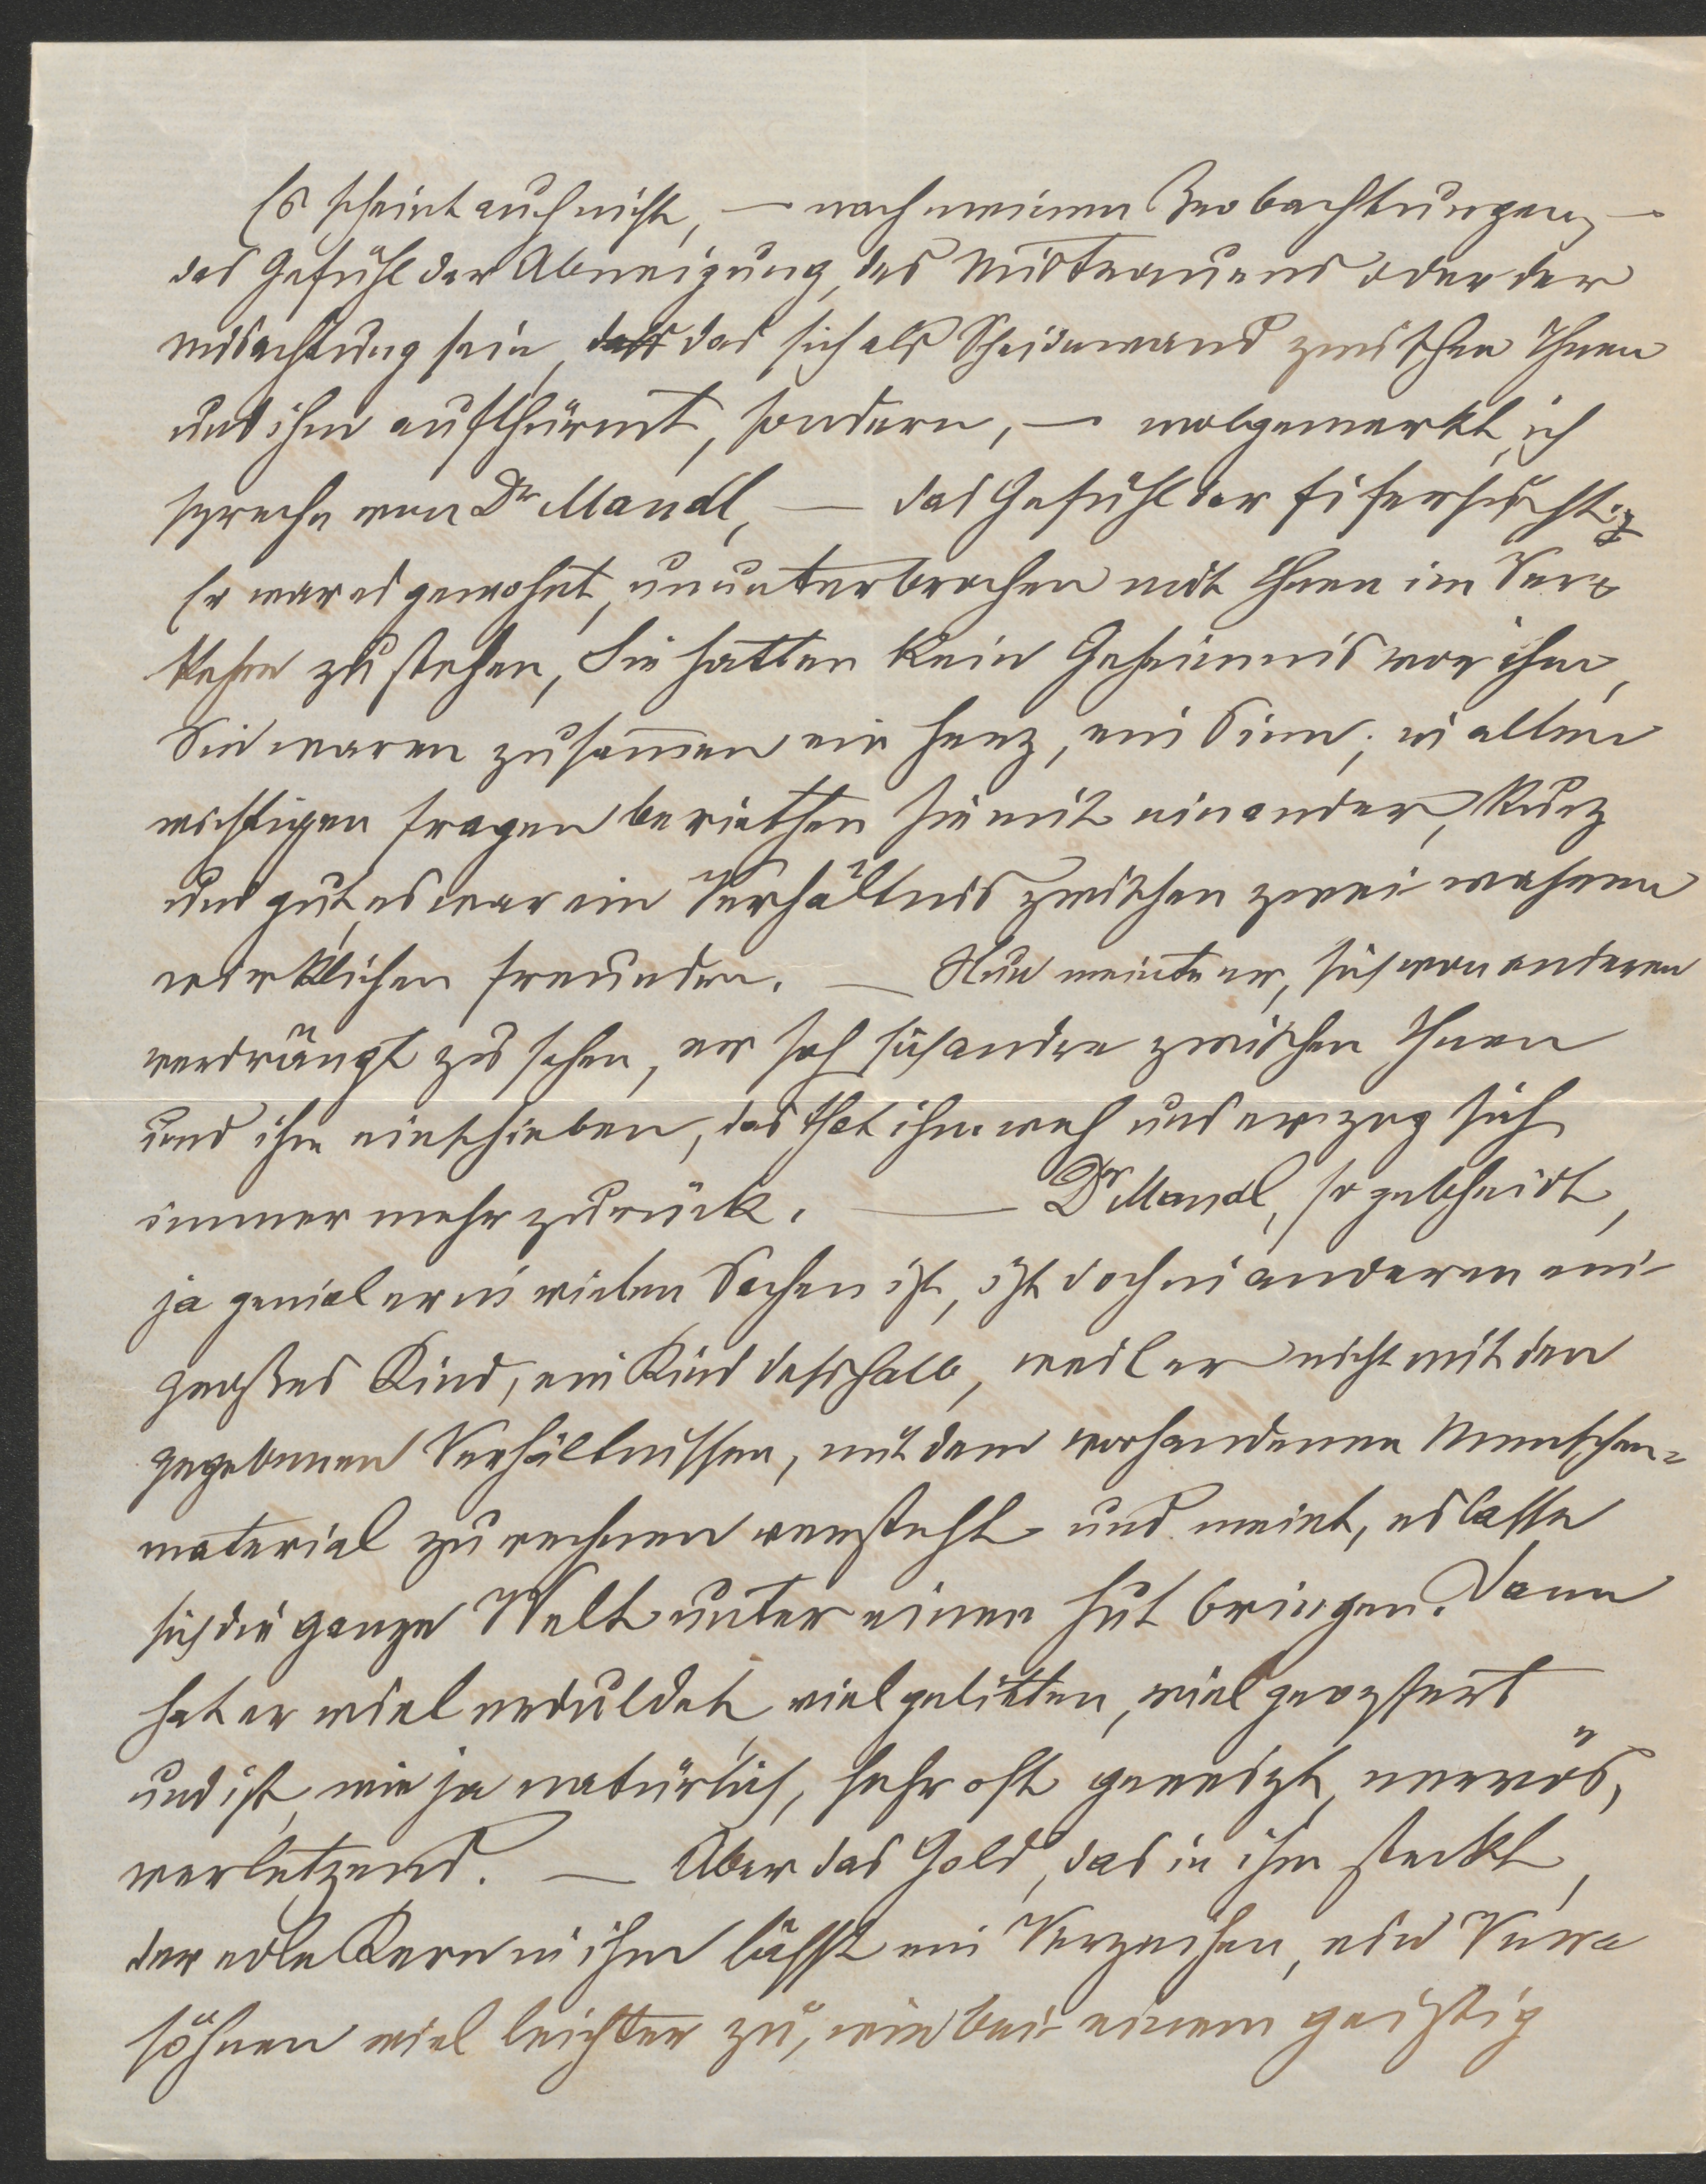 Es scheint auch nicht, — nach meinen Beobachtungen, —
das Gefühl der Abneigung, des Mistrauens oder der
Misachtung sein, das sich als Scheidewand zwischen Ihnen
und ihm aufthürmt, sondern, — wolgemerkt, ich
spreche von Dr Mandl, — das Gefühl der Eifersucht.
Er war es gewohnt, ununterbrochen mit Ihnen im Ver-
kehre zu stehen, Sie hatten kein Geheimnis vor ihm,
Sie waren zusammen ein Herz, ein Sinn; in allen
wichtigen Fragen beriethen Sie mit einander, kurz
und gut, es war ein Verhältnis zwischen zwei wahren
wirklichen Freunden. — Nun meinte er, sich von anderen
verdrängt zu sehen, er sah sich andre zwischen Ihnen
und ihm einschieben, das that ihm weh und er zog sich
immer mehr zurück. — Dr Mandl, so gescheidt,
ja genial er in vielen Sachen ist, ist doch in anderen ein
großes Kind, ein Kind desshalb, weil er nicht mit den
gegebenen Verhältnissen, mit dem vorhandenen Menschen=
material zu rechnen versteht und meint, es lasse
sich die ganze Welt unter einen Hut bringen. Dann
hat er viel erduldet, viel gelitten, viel geopfert
und ist, wie ja natürlich, sehr oft gereizt, nervös,
verletzend. — Aber das Gold, das in ihm steckt,
der edle Kern in ihm lässt ein Verzeihen, ein Ver-
söhnen viel leichter zu, wie bei einem geistig